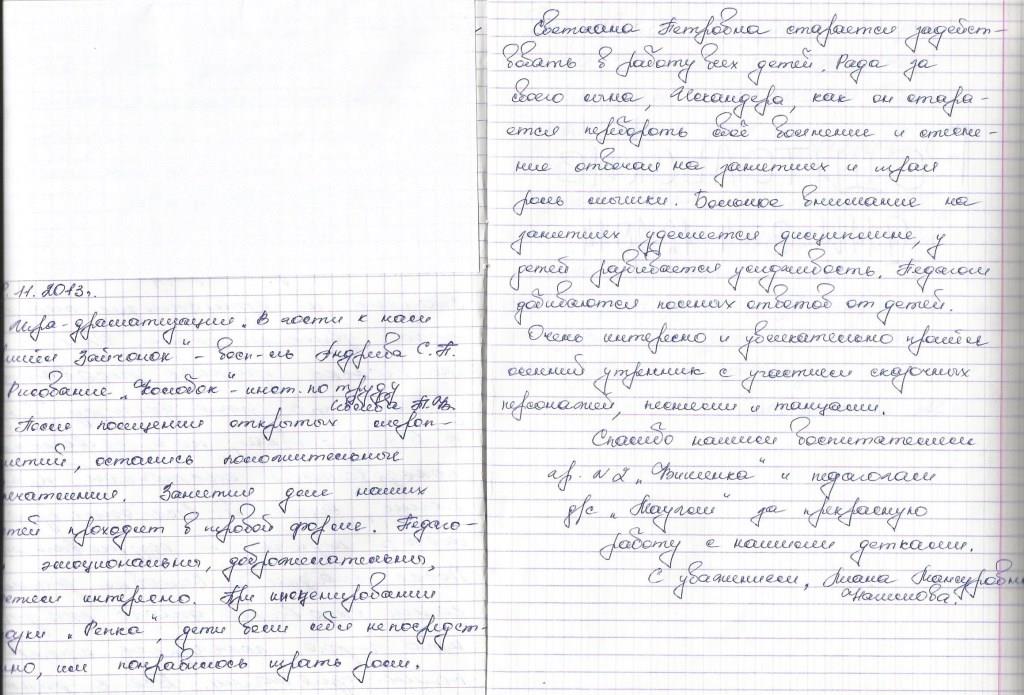 . 11. 2013г.
Игра-драматизация „В гости к нам
Зайчонок" – восп-ль Андреева С. П.
Рисование „Колобок" – инст. по труду
П.В.
После посещения открытых мероп-
остались положительные
Занятия для наших
проходят в игровой форме. Педаго-
эмоциональны, доброжелательны,
интересно. При инсценировании
„Репка", дети вели себя непосредст-
им понравилось играть роли.
Светлана Петровна старается задейст-
вовать в работу всех детей. Рада за
своего сына, Искандера, как он стара-
ется перебороть своё волнение и стесне-
ние отвечая на занятиях и играя
роль мышки. Большое внимание на
занятиях уделяется дисциплине, у
детей развивается усидчивость. Педагоги
добиваются полных ответов от детей.
Очень интересно и увлекательно прошёл
осенний утренник с участием сказочных
персонажей, песнями и танцами.
Спасибо нашим воспитателям
гр. №2 „Вишенка" и педагогам
д/с „Маугли" за прекрасную
работу с нашими детками.
С уважением, Лиана